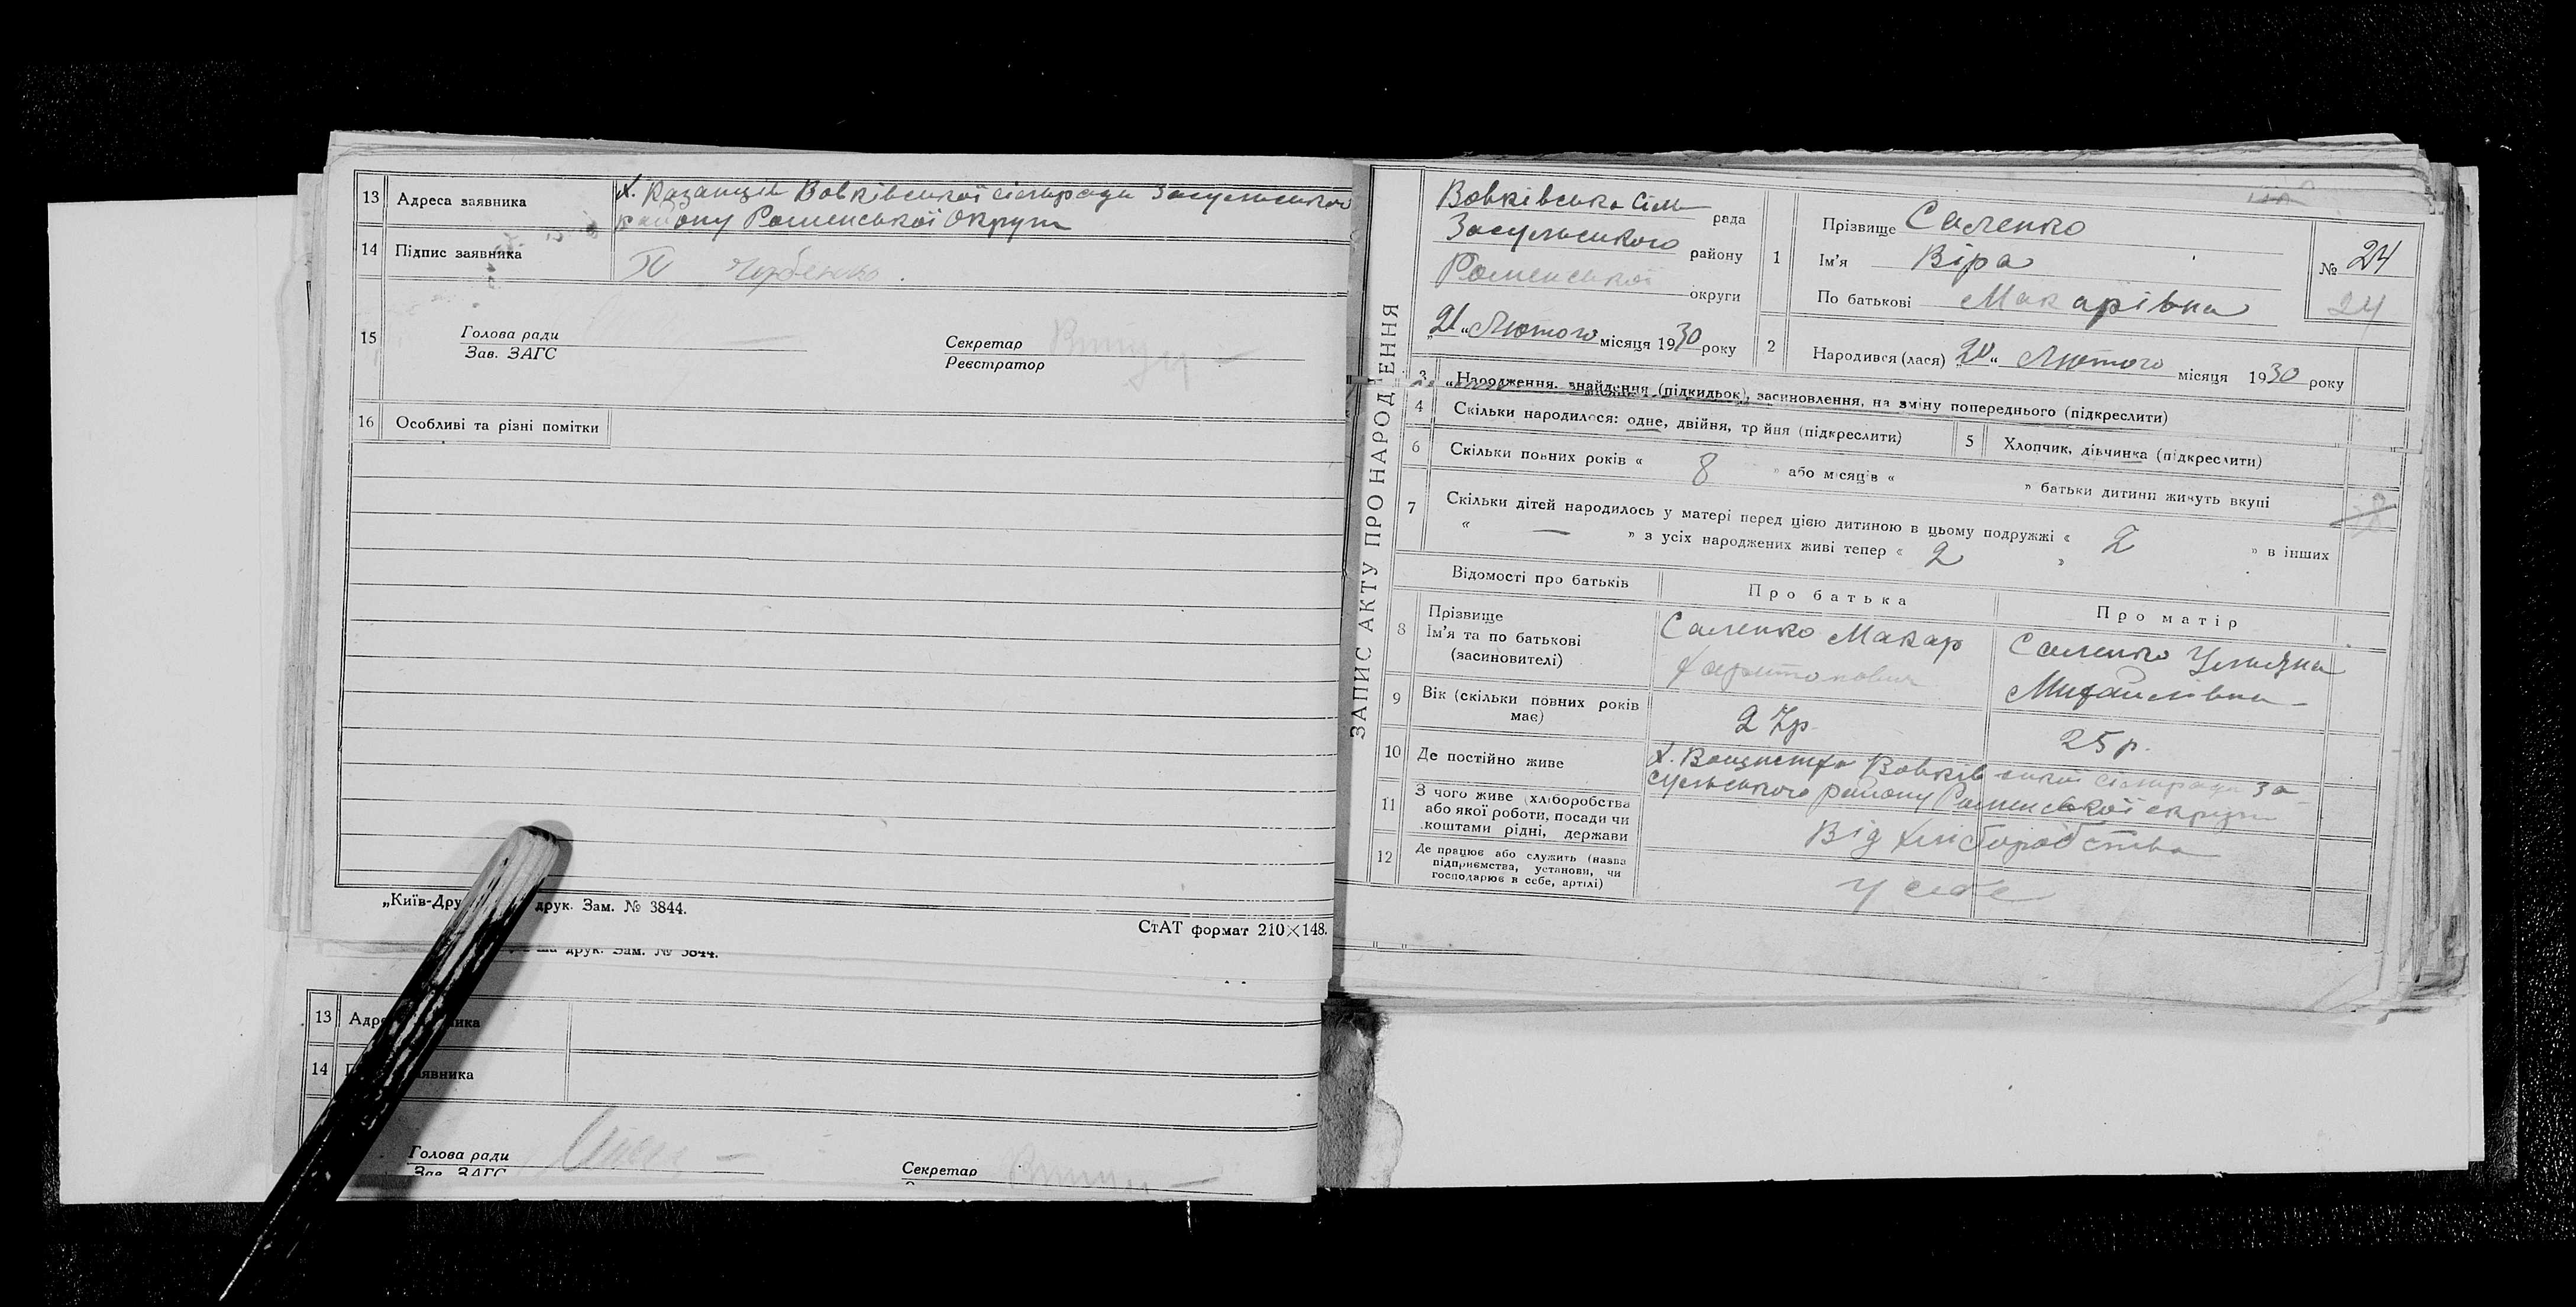 13 Адреса заявника
х. Казанци Вовківської сільради Засульського
району Роменської Округи
14 Підпис заявника
15 Голова ради
Зав. ЗАГС
Секретар
Реєстратор
16 Особливі та різні помітки
„Київ-Дру друк. Зам. № 3844.
СтАТ формат 210×148.
друк. Зам. № 3844.
13
14
Голова ради
Зав. ЗАГС
Секретар
ЗАПИС АКТУ ПРО НАРОДЖЕННЯ
Вовківська Сіль рада
Засульського району
Роменської округи
„21„ Лютого місяця 1930 року
1 Прізвище Саленко
Ім'я Віра
По батькові Макарівна
№ 24
24
2 Народився (лася) „20„ Лютого місяця 1930 року
3 Народження, знайдення (підкидьок), засиновлення, на зміну попереднього (підкреслити)
4 Скільки народилося: одне, двійня, тройня (підкреслити)
5 Хлопчик, дівчинка (підкреслити)
6 Скільки повних років « 8 » або місяців « » батьки дитини живуть вкупі
7 Скільки дітей народилось у матері перед цією дитиною в цьому подружжі « 2 » в інших
« — » з усіх народжених живі тепер « 2 »
Відомості про батьків
Про батька
Про матір
8 Прізвище
Ім'я та по батькові
(засиновителі)
Саленко Макар
Харитонович
Саленко Ульяна
Михайлівна
9 Вік (скільки повних років
має)
27р.
25 р.
10 Де постійно живе
Вовківської сільради За
сульського району Роменської округи
11 З чого живе (хліборобства
або якої роботи, посади чи
коштами рідні, держави
Від хліборобства
12 Де працює або служить (назва
підприємства, установи, чи
господарює в себе, артілі)
У себе